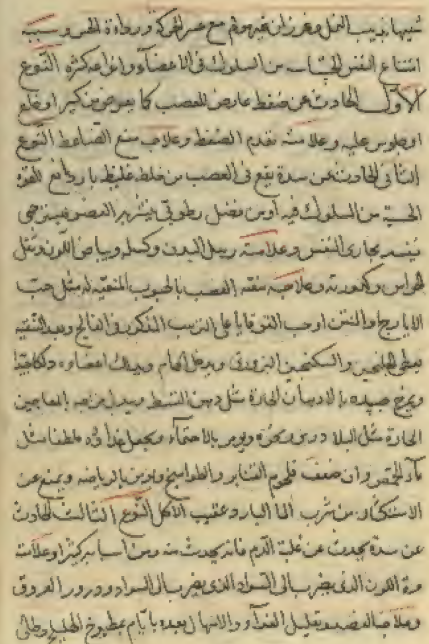 شبيها بدبيب النمل وغرزان غير مولم مع عسر الحركة ورداءة الحس وسببه
امتناع النفس الحساس من السلوك في الاعضاء وانواعه كثيرة النوع
الاول الحادث عن ضغط عارض للعصب كما يعرض من كسر او خلع
او جلوس عليه وعلامته تقدم الضغط وعلاجه منع الضاغط النوع
الثاني الحادث عن سدة تقع في العصب من خلط غليظ بارد مانع للقوة
الحسية من السلوك فيه او من فضل رطوبي العصب
مجاري النفس وعلامته البدن وكسله وبياض اللون وثقل
الحواس وكدورته وعلاجه تنقية العصب بالحبوب المنقية له مثل حب
الايارج والمنتن او حب القوقايا على الترتيب المذكور في الفالج وبعد التنقية
يعطى الجلنجبين والسكنجبين البزوري ويدخل الحمام ويدلك اعضاوه
ويمرخ جسده بالادهان الحارة مثل دهن القسط ويبدل مزاجه بالمعاجين
الحارة مثل البلادري ونحوه ويومر بالاحتماء ويجعل غذاوه ملطفا مثل
ماء الحمص وان ضعف فلحوم القنابر والطواهيج ويومر بالرياضة ويمنع عن
الاستكثار من شرب الماء البارد وعقيب الاكل النوع الثالث الحادث
عن سدة يحدث عن غلبة الدم فانه يحدث منه ومن اسبابه كثيرا وعلامته
حمرة اللون الذي يضرب الى السواد الذي يضرب الى السواد ودرور العروق
وعلاجه الفصد وتقليل الغذاء والاسهال بعده بايام بمطبوخ الهليلج